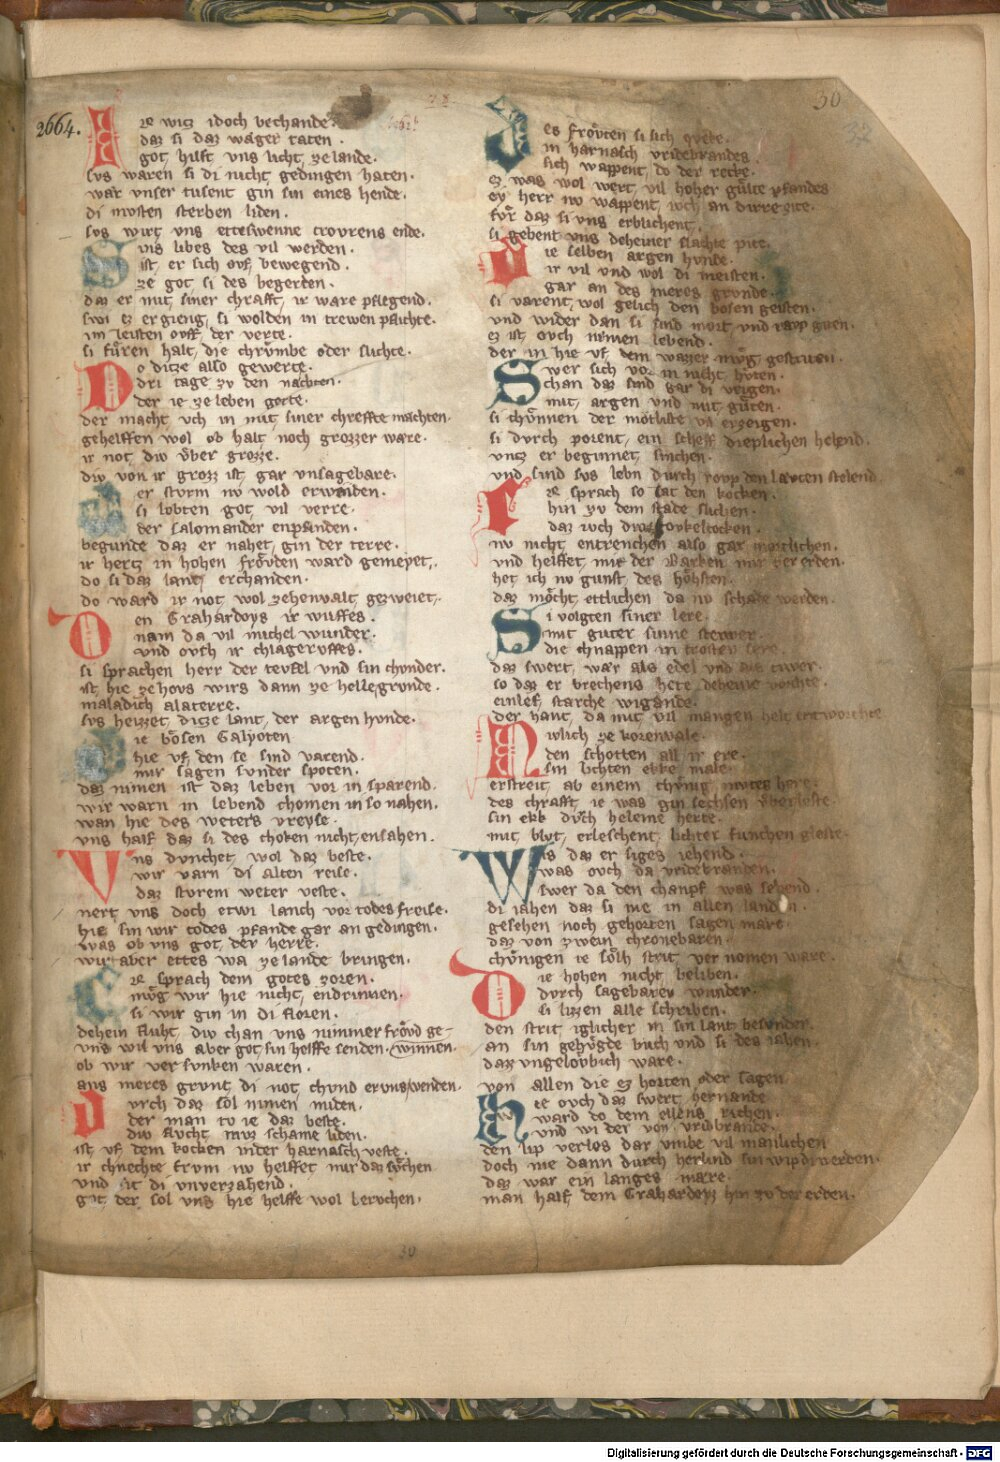 2664.
30
Ire witz idoch bechande.
daz si daz wager taten.
got hilft vns licht ze lande.
svs waren si di nicht gedingen haten.
war vnser tusent gin sin eines hende.
di mvsten sterben liden.
svs wirt vns etteswenne trovrens ende.
Sins libes des vil werden.
ist er sich ovf bewegend.
ze got si des begerten.
daz er mit siner chrafft ir ware pflegend.
swi ez ergieng, si wolden in trewen pflichte.
im leisten ovff der verte.
si fůren halt die chrvmbe oder slichte.
Do ditze also gewerte.
dri tage zv den nachten.
der ie ze leben gerte.
der macht vch in mit siner chreffte machten.
gehelffen wol ob halt noch grozzer ware.
ir not div vber grozze.
div von ir grozz ist gar vnsagebare.
Der stvrm nv wold erwinden.
si lobten got vil verre.
der salomander enpfinden.
begunde daz er nahet gin der terre.
ir hertz in hohen frovden ward gemeyet.
do si daz lant erchanden.
do ward ir not wol zehenvalt gezweiet.
Den Grahardoys ir wuffes.
nam da vil michel wunder.
vnd ovch ir chlageruffes.
si sprachen herr der tevfel vnd sin chvnder.
ist hie ze hovs wirs dann ze hellegrvnde.
maladich alaterre.
svs heizzet ditze lant, der argen hvnde.
Die bosen Galyoten
hie vf den se sind varend.
mir sagen svnder spoten.
daz nimen ist daz leben vor in sparend.
wir warn in lebend chomen in so nahen.
wan hie des weters vreyse.
vns half daz si des choken nicht ensahen.
Vns dvnchet wol daz beste.
wir varn di alten reise.
daz stvrem weter veste.
nert vns doch etwi lanch vor todes freise.
hie sin wir todes pfande gar an gedingen.
was ob vns got der herre.
wir aber ettes wa ze lande bringen.
Ere sprach dem gotes zoren.
mvg wir hie nicht endrinnen.
si wir gin in di floren.
dehein fluht div chan vns nimmer frovd ge-
winnen.
vns wil vns aber got sin helffe senden.
ob wir versvnken waren.
ans meres grvnt di not chvnd er vns wenden.
Dvrch daz sol nimen miden.
der man tv ie daz beste.
div flvcht mvz schame liden.
ist vf dem kocken inder harnasch veste.
ir chnechte frvm nv helffet mir daz svchen
vnd sit di vnverzahend.
got der sol vns hie helffe wol bervchen.
Des frovten si sich
in harnasch vridebrandes.
sich wappent do der recke.
ez was wol wert vil hoher gulte pfandes
ey herr nv wappent iuch an dirre zite.
fvr daz si vns erblichent.
si gebent vns deheiner slachte
Die selben argen hvnde.
ir vil vnd wol di meisten.
gar an des meres grvnde.
si varent wol gelich den bosen geisten.
vnd wider dan si sind mort vnd
ez ist ovch nimen lebend.
der in hie vf dem wazzer mvg gestriten.
Swer sich vor in nicht hvten.
chan daz sind gar di veigen.
mit argen vnd mit guten.
si chvnnen der
si dvrch porent ein scheff dieplichen helend.
vntz er beginnet sinchen.
vnd sind svs lebn durch den levten stelend.
Ere sprach so lat den kocken.
hin zv dem stade slichen.
daz iuch
nv nicht entrenchen also gar mortlichen.
vnd helffet mir der barken mir zer erden.
het ich nv gunst des hohsten.
daz mocht ettlichen da nv schade werden.
Si volgten siner lere.
mit guter sinne stewer.
die chnappen in trosten sere.
daz swert war als edel vnd als tiwer.
so daz er brechens hete deheine vorchte.
einlef starche wigande.
der hant da mit vil mangen helt
Niwlich ze korenvale.
den schotten all ir ere.
sin lichten ekke male.
erstreit ab einem chvnig
des chrafft ie was gin sechsen
sin ekk dvrch heleine herte.
mit blvt erleschent lichter funchen gleste.
Wis daz er siges iehend.
was ovch da vridebranden.
swer da den chanpf was sehend.
di iahen daz si nie in allen landen.
gesehen noch gehorten sagen mare.
daz von zwein chronebaren.
chvnigen ie solh strit vernomen ware.
Die hohen nicht beliben.
dvrch sagebarer wunder.
si liezen alle schriben.
den strit iglicher in sin lant besvnder.
an sin gehvgde buch vnd si des iahen.
daz vngelovbich ware.
von allen die ez horten oder sagen
Hie ovch daz swert hernande
ward do dem ellens richen.
vnd wider von vridbrande.
den lip verlos dar vmbe vil manlichen
doch nie dann durch herlind sin wip di werden.
daz war ein langes mare.
man half dem Grahardeyz hin zv der erden.
30
Digitalisierung gefördert durch die Deutsche Forschungsgemeinschaft - DFG